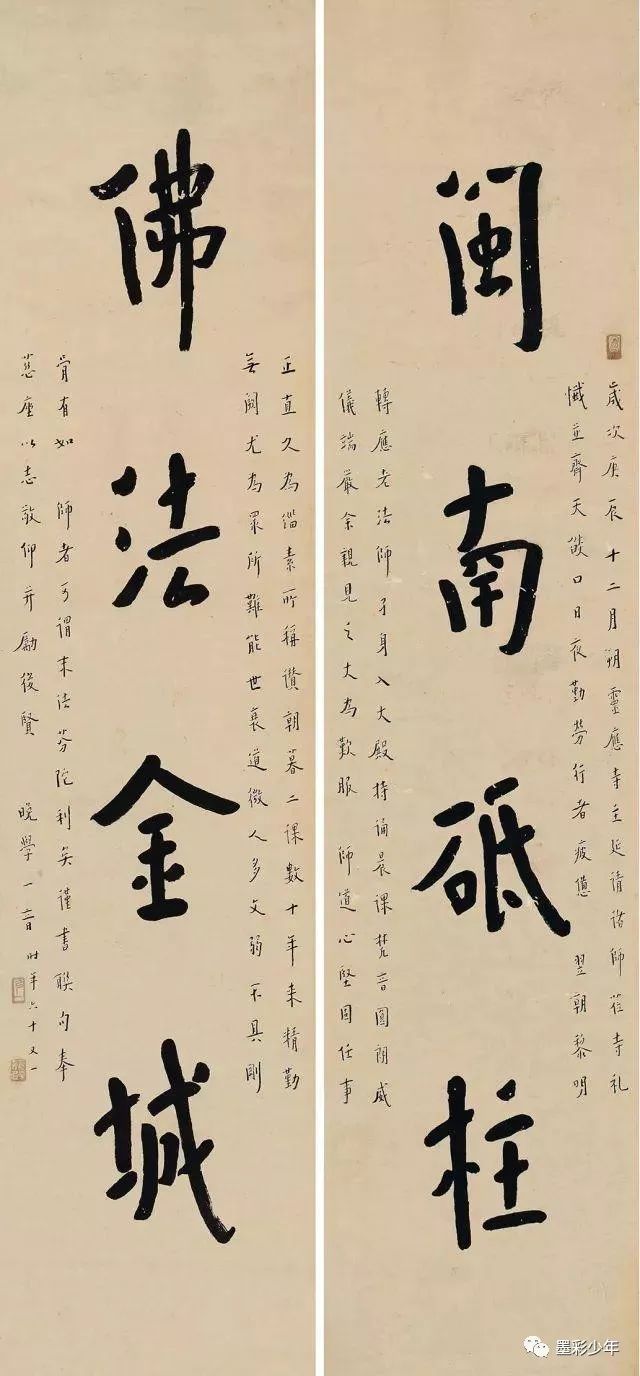 閩南砥柱
歲次庚辰十二月朔靈應寺主延請諸師莅寺礼
懺並齊天燄口日夜勤勞行者疲憊 翌朝黎明
轉應老法師孑身入大殿持誦晨課梵音圓朗威
儀端嚴余親見之大為歎服 師道心堅固任事
佛法金城
正直久為緇素所稱讚朝暮二課數十年来精勤
无闕尤為眾所難能世衰道微人多文弱不具剛
骨有如 師者可謂末法芬陀利矣謹書聯句奉
慈座以志敬仰并勵後賢 晚學一音 时年六十又一
墨彩少年